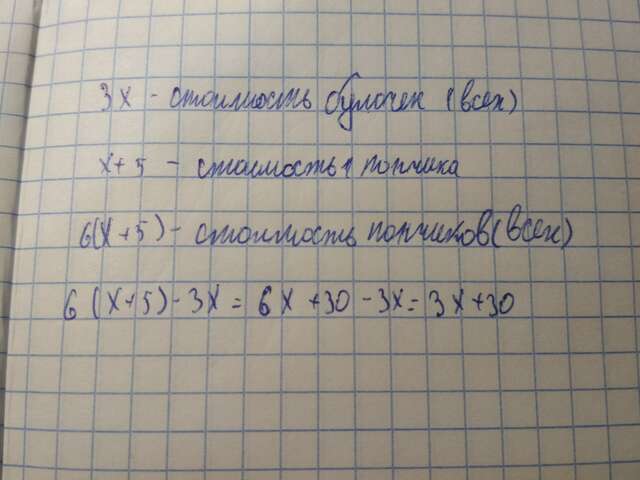 3x - стоимость булочек (всех)
x+5 - стоимость 1 пончика
6(x+5) - стоимость пончиков (всех)
6(x+5)-3x = 6x+30-3x = 3x+30